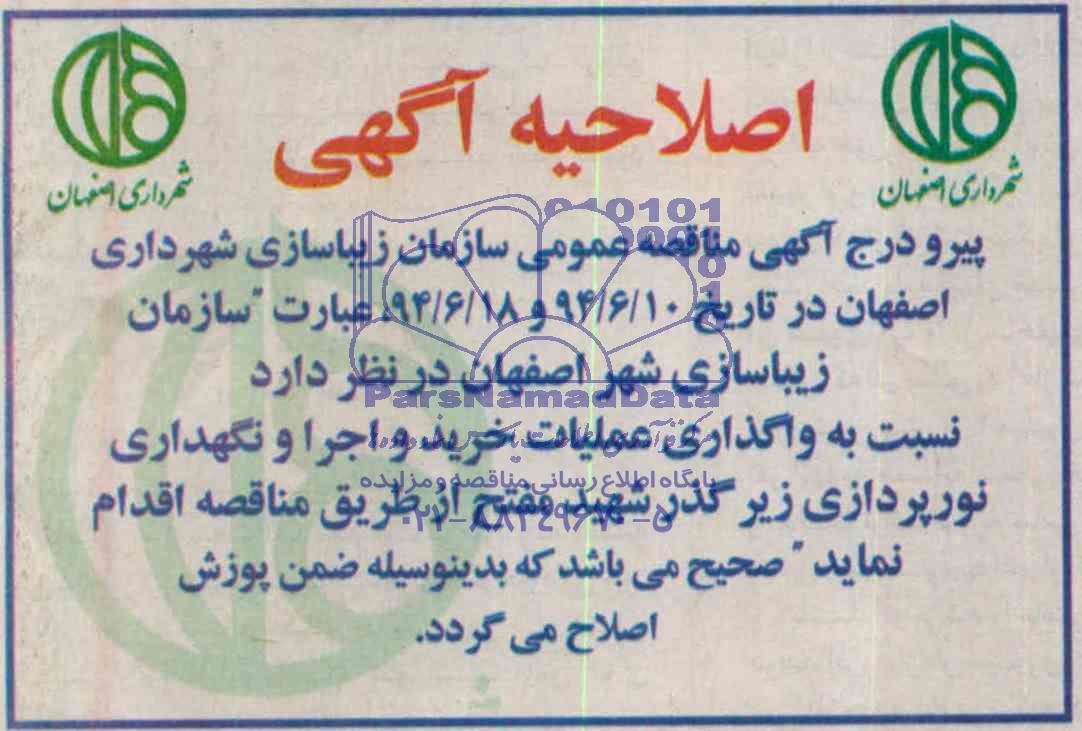 اصلاحیه آگهی
شهرداری اصفهان
شهرداری اصفهان
پیرو درج آگهی مناقصه عمومی سازمان زیباسازی شهرداری
اصفهان در تاریخ ۹۴/۶/۱۰ و ۹۴/۶/۱۸، عبارت "سازمان
زیباسازی شهر اصفهان در نظر دارد
نسبت به واگذاری عملیات خرید و اجرا و نگهداری
نورپردازی زیر گذر شهید مفتح از طریق مناقصه اقدام
نماید" صحیح می باشد که بدینوسیله ضمن پوزش
اصلاح می گردد.
ParsNamadData
پایگاه اطلاع رسانی مناقصه و مزایده